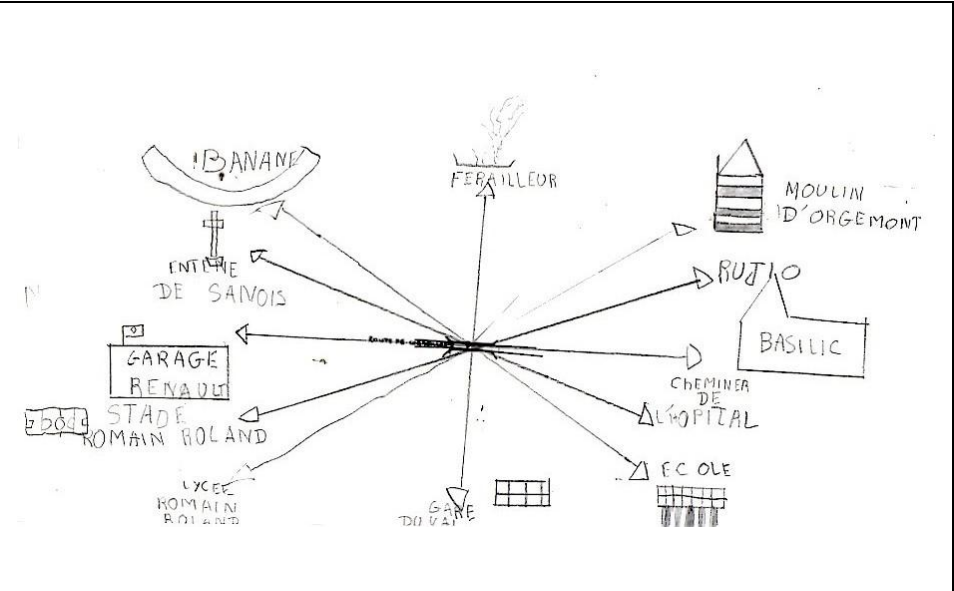 BANANE
FERAILLEUR
MOULIN
D'ORGEMONT
ENTENE
DE SANOIS
BASILIC
ROUTE DE
GARAGE
RENAULT
CHEMINER
DE
L'HOPITAL
STADE
ROMAIN ROLAND
ECOLE
LYCEE
ROMAIN
ROLAND
GARE
DU VAL